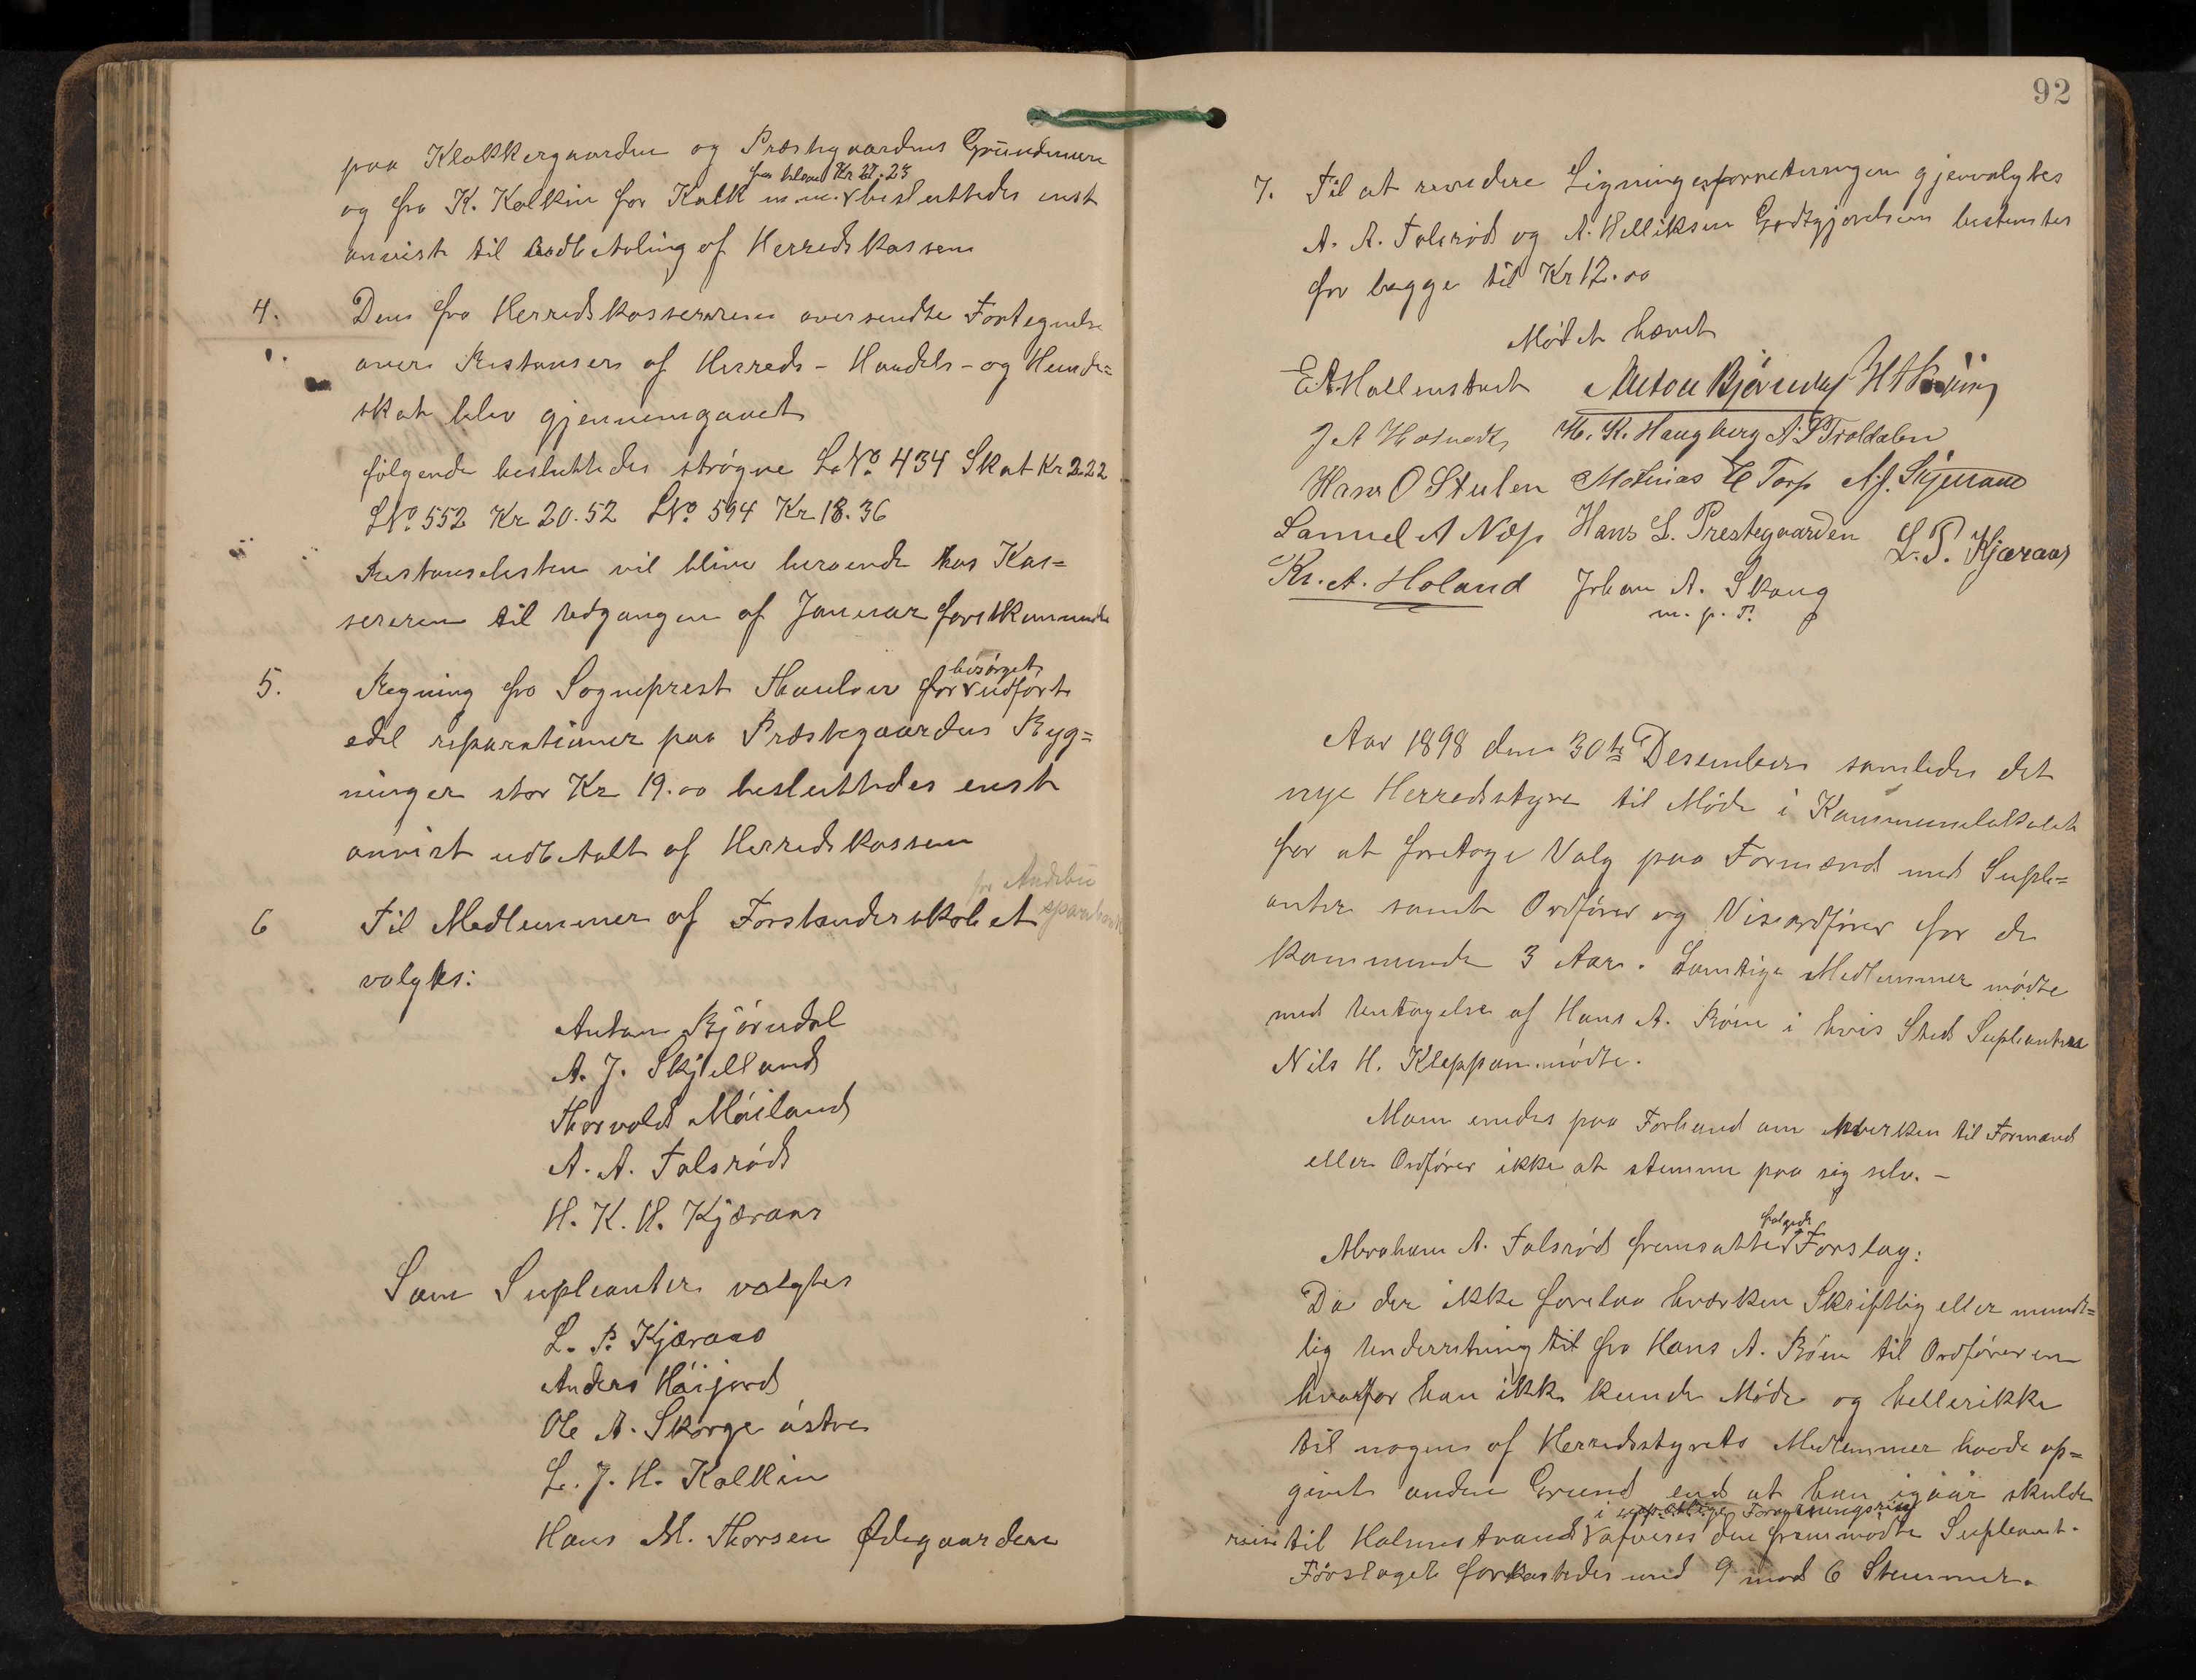 paa Klokkergaarden og Præstegaardens Grundmure
og fra K. Kolkin for Kalk m.m. besluttedes enst
anvist til Udbetaling af Herredskassen
4. Den fra Herredskassereren oversendte Fortegnelse
over Restanser af Herreds- Handels- og Hunde=
skat blev gjennemgaaet
følgende besluttedes strøgne LNo 434 Skat Kr 2.22
LNo 552 Kr 20.52 LNo 594 Kr 18.36
Restanselisten vil blive beroende hos Kas=
sereren til Udgangen af Januar førstkommende
5. Regning fra Sogneprest Thaulow for besørget udført
edel reparationer paa Præstegaardens Byg=
ninger stor Kr 19.00 besluttedes enst
anvist udbetalt af Herredskassen
for Andebu
6 Til Medlemmer af Forstanderskabet sparebank
valgtes:
Anton Bjørndal
A. J. Skjelland
Thorvald Møiland
A. A. Falsrød
H. K. H. Kjæraas
Som Supleanter valgtes
L. P. Kjæraas
Anders Høijord
Ole A. Skorge østre
L. J. H. Kolkin
Hans M. Thorsen Ødegaarden
92
7. Til at revidere Ligningsforretningen gjenvalgtes
A. A. Falsrød og A. Helliksen Godtgjørelsen bestemtes
for begge til Kr 12.00
Mødet hævet
E. A. Hallenstvedt Anton Bjørndal
H. K. Haugberg A. P. Troldalen
Hans O Stulen Mathias H Torp A. J. Skjelland
Samuel A Næs Hans L. Prestegaarden L. P. Kjæraas
Kr. A. Holand Johan A. Skaug
m. p. P.
Aar 1898 den 30te Desember samledes det
nye Herredsstyre til Møde i Kommunelokalet
for at foretage Valg paa Formænd med Suple=
anter samt Ordfører og Viseordfører for de
kommende 3 Aar. Samtlige Medlemmer mødte
med Undtagelse af Hans A. Bøen i hvis Sted Supleanten
Nils H. Kleppan mødte.
Man enedes paa Forhand om hverken til Formænd
eller Ordfører ikke at stemme paa sig selv. -
Abraham A. Falsrød fremsatte følgende Forslag:
Da der ikke forelaa hværken Skriftlig eller mundt=
lig Underretning til fra Hans A. Bøen til Ordføreren
hvorfor han ikke kunde Møde og hellerikke
til nogen af Herredsstyrets Medlemmer havde op=
givet anden Grund end at han igaar skulde
reise til Holmestrand i Forretningsreise afvises den fremmødte Supleant.
Forslaget forkastedes med 9 mod 6 Stemmer.